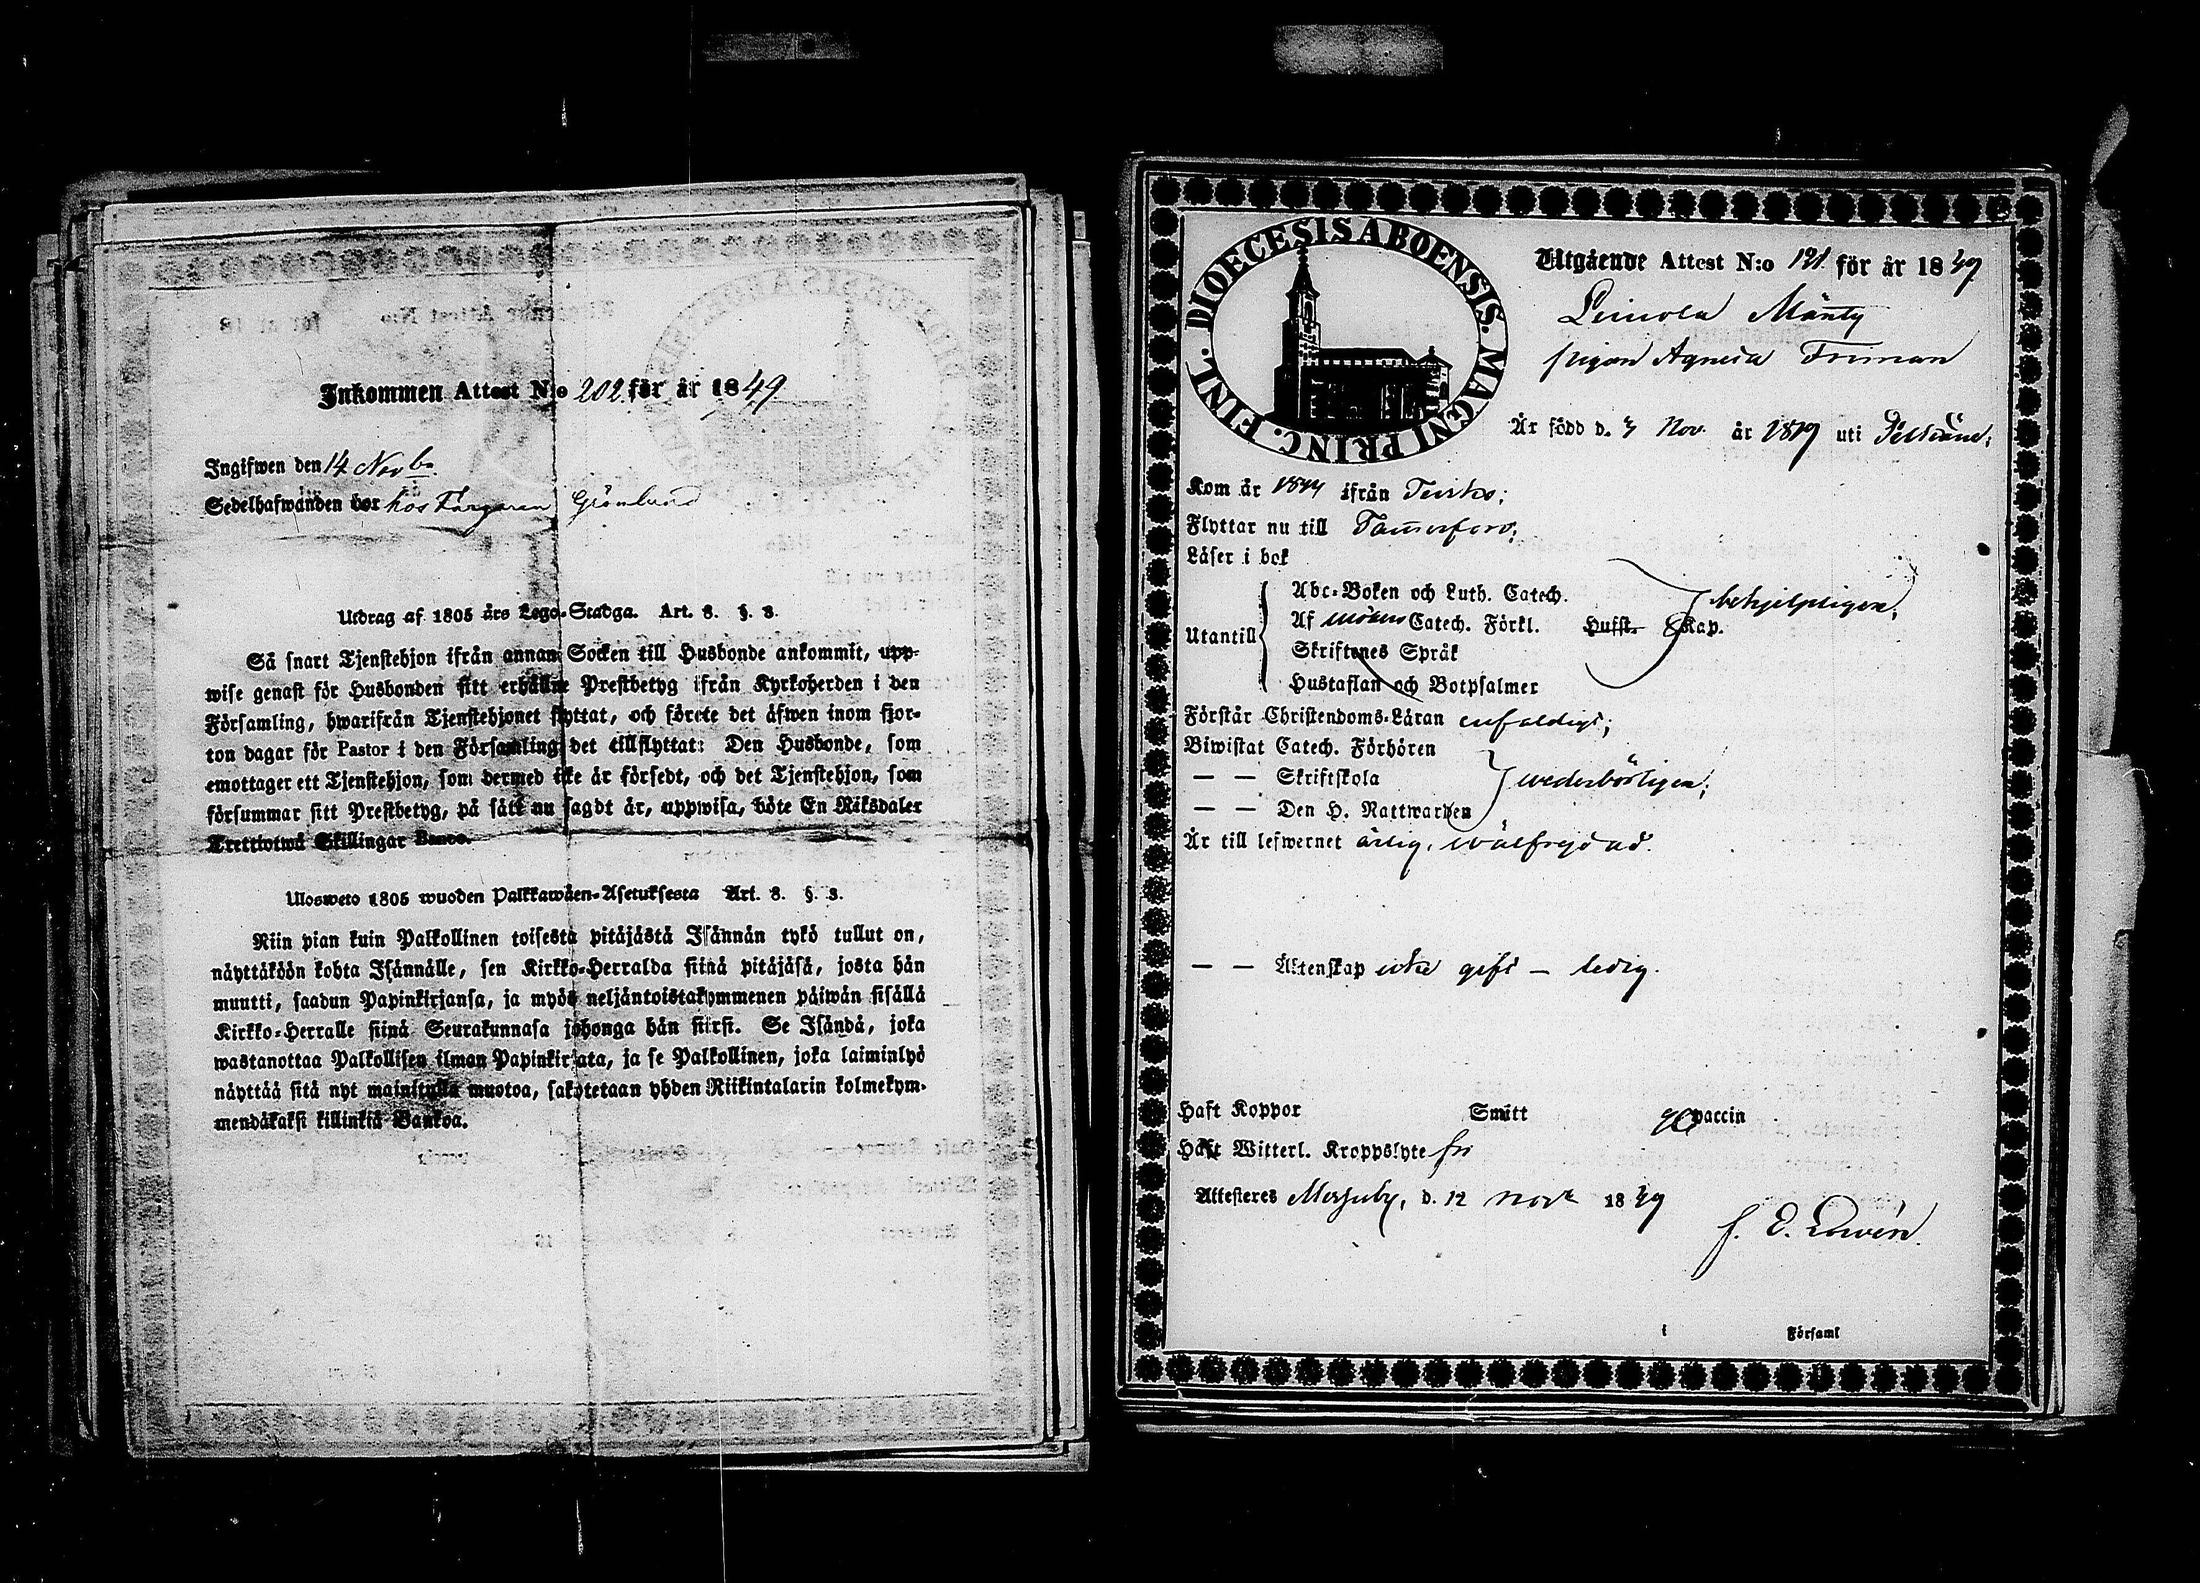 Inkommen Attest N:o 202 för år 1849
Ingifwen den 14 Novbr
Sedelhafwanden bor hos Färgaren Grönlund
Utdrag af 1805 års Lego-Stadga. Art. 8. §. 3.
Så snart Tjenstehjon ifrån annan Socken till Husbonde ankommit, upp-
wise genast för Husbonden sitt erhållne Prestbetyg ifrån Kyrkoherden i den
Församling, hwarifrån Tjenstehjonet flyttat, och förete det äfwen inom fjor-
ton dagar för Pastor i den Församling det tillflyttat: Den Husbonde, som
emottager ett Tjenstehjon, som dermed icke är försedt, och det Tjenstehjon, som
försummar sitt Prestbetyg, på sätt nu sagdt är, uppwisa, böte En Riksdaler
Trettiotwå Skillingar Banco.
Ulosweto 1805 wuoden Palkkawäen-Asetuksesta Art. 8. §. 3.
Niin pian kuin Palkollinen toisesta pitäjästä Isännän tykö tullut on,
näyttäköön kohta Isännälle, sen Kirkko-Herralda siinä pitäjäsä, josta hän
muutti, saadun Papinkirjansa, ja myös neljäntoistakymmenen päiwän sisällä
Kirkko-Herralle siinä Seurakunnasa johonga hän siirsi. Se Isändä, joka
wastanottaa Palkollisen ilman Papinkirjata, ja se Palkollinen, joka laiminlyö
näyttää sitä nyt mainitulla muotoa, sakotetaan yhden Riikintalarin kolmekym-
mendäkaksi killinkiä Bankoa.
DIOECESIS ABOENSIS. MAGNI PRINC. FINL.
Utgående Attest N:o 121 för år 1849
Leinola Mänty
pigan Agneta Friman
Är född d. 3 Nov. år 1819 uti Pelkäne;
Kom år 1844 ifrån Teisko;
Flyttar nu till Tammerfors;
Läser i bok
Abc-Boken och Luth. Catech.
Utantill Af Möllers Catech. Förkl. Hufst. Kap. behjelpligen;
Skriftenes Språk
Hustaflan och Botpsalmer
Förstår Christendoms-Läran enfaldigt;
Biwistat Catech. Förhören
— — Skriftskola wederbörligen;
— — Den H. Nattwarden
Är till lefwernet ärlig, wälfrejdad.
— — Äktenskap icke gift — ledig.
Haft Koppor Smitt vaccin
Haft Witterl. Kroppslyte fri
Attesteres Messuby, d. 12 Nov. 1849
i Församl